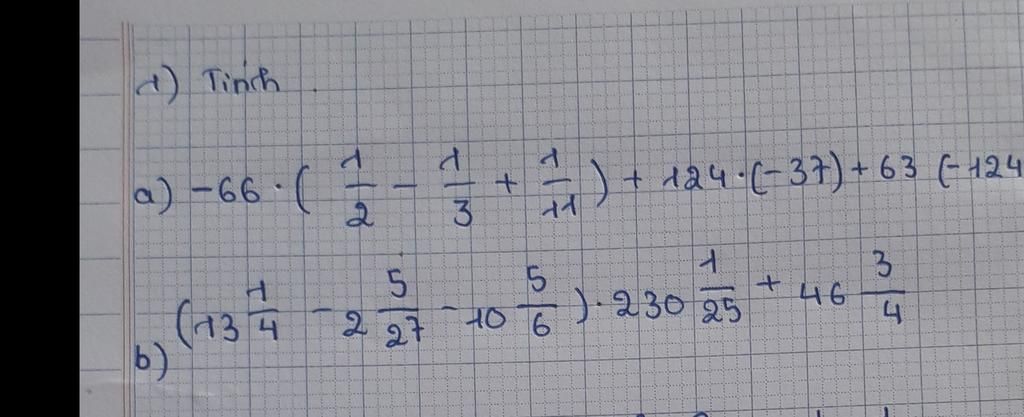 1) Tính
a) -66 · ( 1/2 - 1/3 + 1/11 ) + 124 · (-37) + 63 (-124
b) (13 1/4 - 2 5/27 - 10 5/6 ) · 230 1/25 + 46 3/4